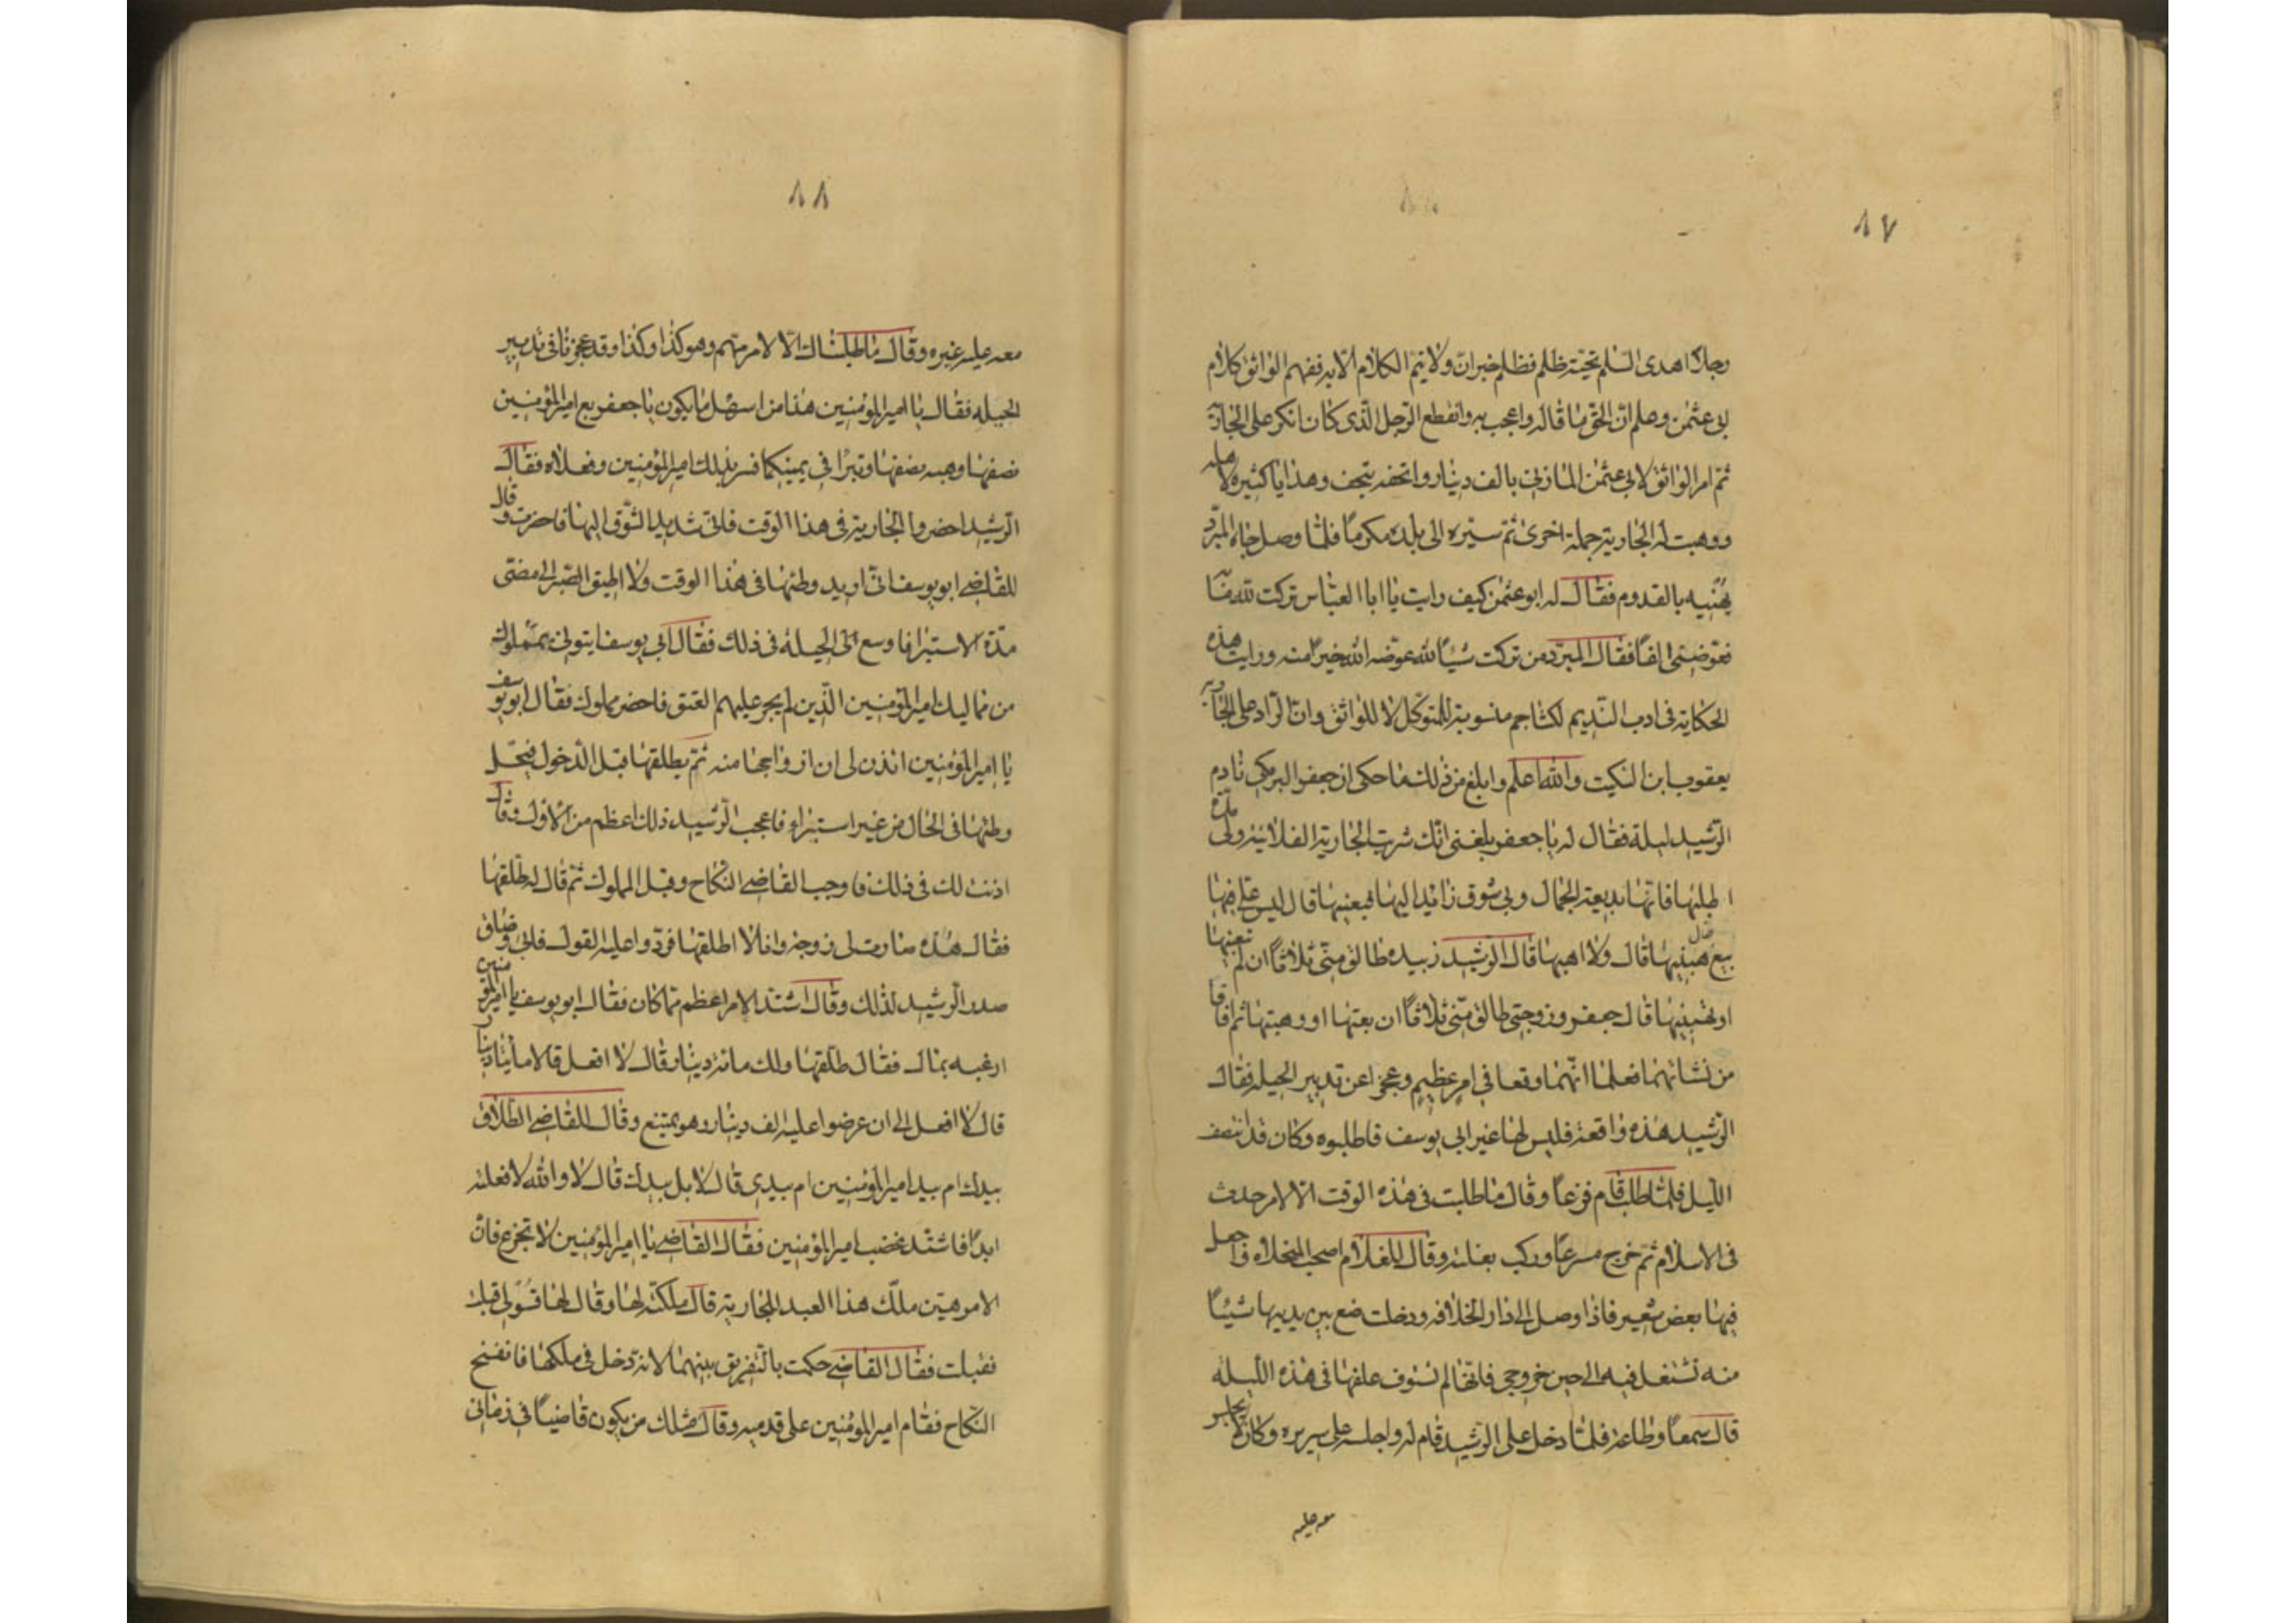 ٨٧
رجلا اهدى السلم تحية ظلم فظلم خبر ان ولا يتم الكلام الا به ففهم الواثق كلام
ابى عثمن وعلم ان الحق ما قاله واعجب به وانقطع الرجل الذى كان انكر على الجارية
ثم امر الواثق لابى عثمن المازنى بالف دينار واتحفه بتحف وهدايا كثيرة لاهله
ووهبت له الجارية جملة اخرى ثم سيره الى بلده مكرمًا فلما وصل جاءه المبرد
يهنيه بالقدوم فقال له ابو عثمن كيف رايت يا ابا العباس تركت لله مائة
فعوضنى الفًا فقال المبرد من ترك شيئًا لله عوضه الله خيرًا منه ورايت هذه
الحكاية فى ادب النديم لكشاجم منسوبة للمتوكل لا للواثق وان الراد على الجارية
يعقوب ابن السكيت والله اعلم وابلغ من ذلك ما حكى ان جعفر البرمكى نادم
الرشيد ليلة فقال له يا جعفر بلغنى انك شريت الجارية الفلانية ولى مدة
اطلبها فانها بديعة الجمال وبى شوق زايد اليها فبعنيها قال ليس على فيها
بيع قال هبنيها قال ولا اهبها قال الرشيد زبيده طالق منى ثلاثًا ان لم تبعنيها
او تهبنيها قال جعفر وزوجتى طالق منى ثلاثًا ان بعتها او وهبتها ثم افاقا
من نشاتهما فعلما انهما وقعا فى امر عظيم وعجزا عن تدبير الحيله فقال
الرشيد هذه واقعة فليس لها غير ابى يوسف فاطلبوه وكان قد انتصف
الليل فلما طلب قام فزعًا وقال ما طلبت فى هذه الوقت الا لامر حدث
فى الاسلام ثم خرج مسرعًا وركب بغلته وقال للغلام اصحب المخلاه واجعل
فيها بعض شعير فاذا وصل الى دار الخلافه ودخلت ضع بين يديها شيئًا
منه تشتغل فيه الى حين خروجى فانها لم تستوف علفها فى هذه الليله
قال سمعًا وطاعة فلما دخل على الرشيد قام له واجلسه على سريره وكان لم يجلس
معه عليه
٨٨
معه عليه غيره وقال ما طلبناك الا لامر مهم وهو كذا وكذا وقد عجزنا فى تدبير
الحيله فقال يا امير المؤمنين هذا من اسهل ما يكون يا جعفر بع امير المؤمنين
نصفها وهبه نصفها وتبرا فى يمينكما فسر بذلك امير المؤمنين وفعلاه فقال
الرشيد احضروا الجارية فى هذا الوقت فانى شديد الشوق اليها فاحضرت وقال
للقاضى ابو يوسف انى اريد وطئها فى هذا الوقت ولا اطيق الصبر الى مضى
مدة الاستبرا فاوسع الى الحيلة فى ذلك فقال ابى يوسف ايتونى بمملوك
من مماليك امير المؤمنين الذين لم يجر عليهم العتق فاحضر مملوك فقال ابو يوسف
يا امير المؤمنين ائذن لى ان ازواجها منه ثم يطلقها قبل الدخول فيحل
وطئها فى الحال من غير استبراء فاعجب الرشيد ذلك اعظم من الاول وقال
اذنت لك فى ذلك فاوجب القاضى النكاح وقبل المملوك ثم قال له طلقها
فقال هذه صارت لى زوجة وانا لا اطلقها فرددوا عليه القول فابى وضاق
صدر الرشيد لذلك وقال اشتد الامر اعظم مما كان فقال ابو يوسف يا امير المؤمنين
ارغبه بمال فقال طلقها ولك مائة دينار قال لا افعل قال مأيتا دينار
قال لا افعل الى ان عرضوا عليه الف دينار وهو يمتنع وقال للقاضى الطلاق
بيدك ام بيد امير المؤمنين ام بيدى قال لا بل بيدك قال لا والله لا فعلته
ابدًا فاشتد غضب امير المؤمنين فقال القاضى يا امير المؤمنين لا تجزع فان
الامر هين ملك هذا العبد للجارية قال ملكته لها وقال لها قولى قبلت
فقبلت فقال القاضى حكمت بالتفريق بينهما لانه دخل فى ملكها فانفسخ
النكاح فقام امير المؤمنين على قدميه وقال مثلك من يكون قاضيًا فى زمانى